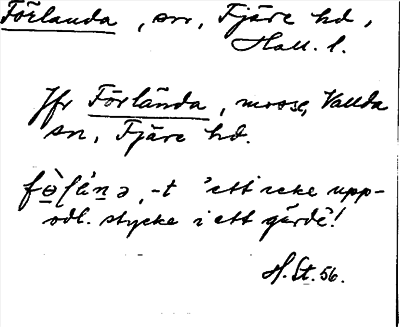 Förlanda, sn, Fjäre hd,
Hall. l.
Jfr Förlända, mosse, Vallda
sn, Fjäre hd.
-t 'ett icke upp-
odl. stycke i ett gärde'!
H. St. 56.